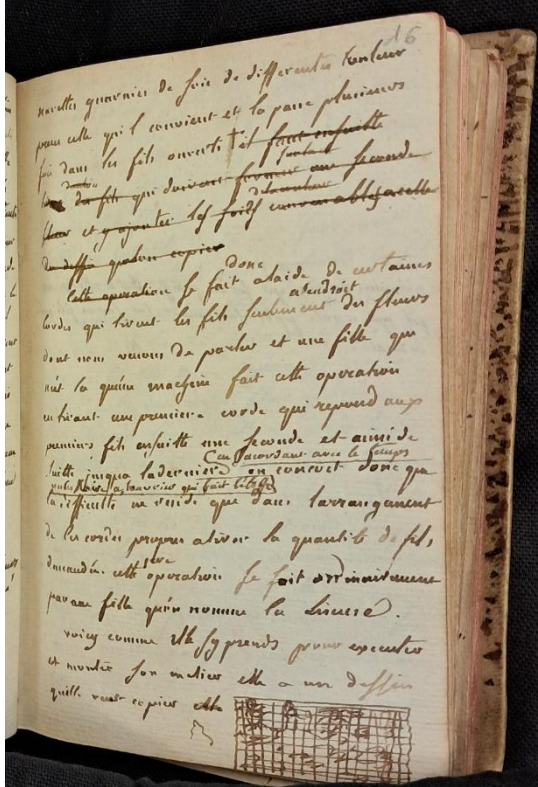 16
navettes guarnies de soie de differentes Couleur
pour celle qu'il convient et la passe plusieurs
fois dans les fils ouverts † et faut ensuitte
surtout
des fils qui doivent former une seconde
fleur et y ajouter les soies convenables a celle
du dessin qu'on copier
donc
Cette operation se fait a laide de certaines
a lendroit
cordes qui tirent les fils seulement des fleurs
dont nous venons de parler et une fille qui
met la machine fait cette operation
en tirant une premiere corde qui repond aux
premiers fils ensuitte une seconde et ainsi de
Con sacordant avec le temps
suitte jusqua laderniere on concoit donc que
louvrier qui fait
la difficulté ne reside que dans larrangement
de les cordes propres a tirer la quantité de fils
demandée cette operation se fait ordinairement
par une fille qu'on nomme la Liseuse.
voicy comme elle sy prends pour executer
et monter son metier elle a un dessin
quelle veut copier elle